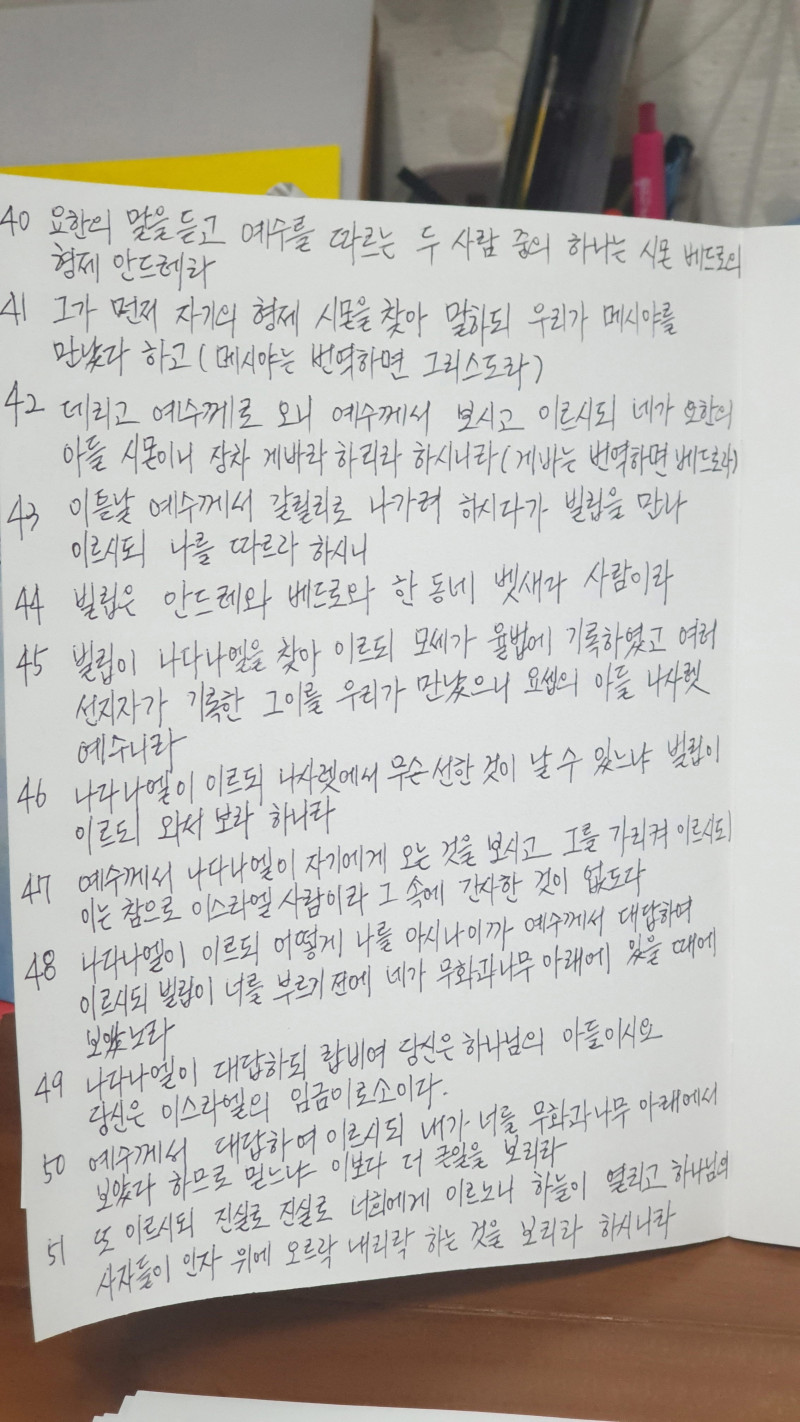 40 요한의 말을 듣고 예수를 따르는 두 사람 중의 하나는 시몬 베드로의
형제 안드레라
41 그가 먼저 자기의 형제 시몬을 찾아 말하되 우리가 메시야를
만났다 하고 (메시야는 번역하면 그리스도라)
42 데리고 예수께로 오니 예수께서 보시고 이르시되 네가 요한의
아들 시몬이니 장차 게바라 하리라 하시니라 (게바는 번역하면 베드로라)
43 이튿날 예수께서 갈릴리로 나가려 하시다가 빌립을 만나
이르시되 나를 따르라 하시니
44 빌립은 안드레와 베드로와 한 동네 벳새다 사람이라
45 빌립이 나다나엘을 찾아 이르되 모세가 율법에 기록하였고 여러
선지자가 기록한 그이를 우리가 만났으니 요셉의 아들 나사렛
예수니라
46 나다나엘이 이르되 나사렛에서 무슨 선한 것이 날 수 있느냐 빌립이
이르되 와서 보라 하니라
47 예수께서 나다나엘이 자기에게 오는 것을 보시고 그를 가리켜 이르시되
이는 참으로 이스라엘 사람이라 그 속에 간사한 것이 없도다
48 나다나엘이 이르되 어떻게 나를 아시나이까 예수께서 대답하여
이르시되 빌립이 너를 부르기 전에 네가 무화과나무 아래에 있을 때에
보았노라
49 나다나엘이 대답하되 랍비여 당신은 하나님의 아들이시요
당신은 이스라엘의 임금이로소이다.
50 예수께서 대답하여 이르시되 내가 너를 무화과나무 아래에서
보았다 하므로 믿느냐 이보다 더 큰일을 보리라
51 또 이르시되 진실로 진실로 너희에게 이르노니 하늘이 열리고 하나님의
사자들이 인자 위에 오르락 내리락 하는 것을 보리라 하시니라